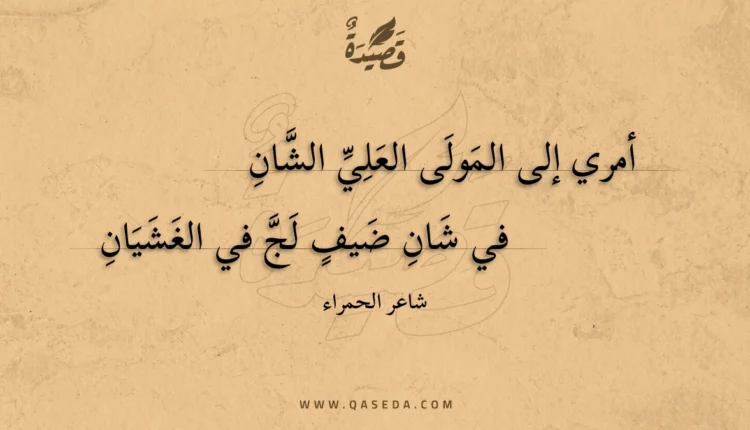 قَصِيْدَةٌ
أمري إلى المَولَى العَلِيِّ الشَّانِ
في شَانِ ضَيفٍ لَجَّ في الغَشَيَانِ
شاعر الحمراء
WWW.QASEDA.COM